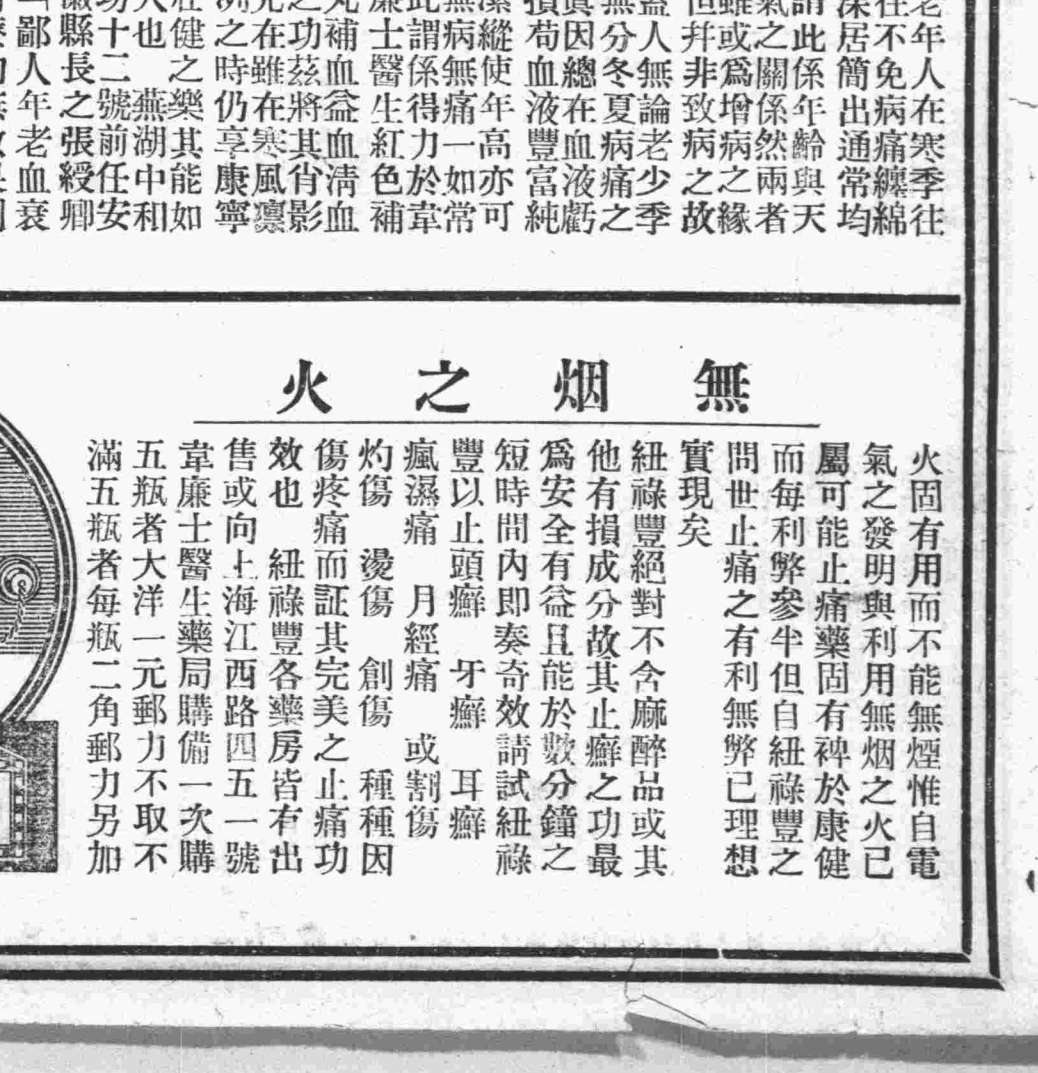 老年人在寒季往
往不免病痛纏綿
深居簡出通常均
謂此係年齡與天
氣之關係然兩者
雖或爲增病之緣
但幷非致病之故
蓋人無論老少季
無分冬夏病痛之
眞因總在血液虧
損苟血液豐富純
潔縱使年高亦可
無病無痛一如常
此謂係得力於韋
廉士醫生紅色補
丸補血益血淸血
之功茲將其肖影
在雖在寒風凛
冽之時仍享康寧
壯健之樂其能如
人也 蕪湖中和
十二號前任安
徽縣長之張綬卿
鄙人年老血衰
無烟之火
火固有用而不能無煙惟自電
氣之發明與利用無烟之火已
屬可能止痛藥固有裨於康健
而每利弊參半但自紐祿豐之
問世止痛之有利無弊已理想
實現矣
紐祿豐絕對不含麻醉品或其
他有損成分故其止癬之功最
爲安全有益且能於數分鐘之
短時間內即奏奇效請試紐祿
豐以止頭癬 牙癬 耳癬
瘋濕痛 月經痛 或割傷
灼傷 燙傷 創傷 種種因
傷疼痛而証其完美之止痛功
效也 紐祿豐各藥房皆有出
售或向上海江西路四五一號
韋廉士醫生藥局購備一次購
五瓶者大洋一元郵力不取不
滿五瓶者每瓶二角郵力另加